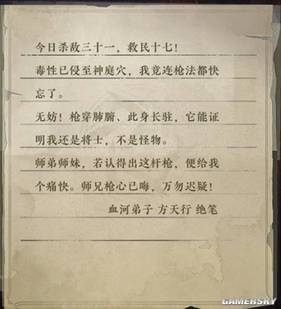 今日杀敌三十一，救民十七！
毒性已侵至神庭穴，我竟连枪法都快
忘了。
无妨！枪穿肺腑、此身长驻，它能证
明我还是将士，不是怪物。
师弟师妹，若认得出这杆枪，便给我
个痛快。师兄枪心已晦，万勿迟疑！
血河弟子 方天行 绝笔
GAMERSKY